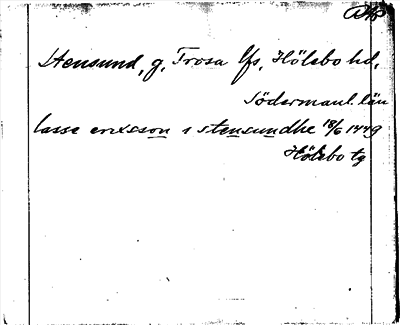 Stensund, g. Trosa lfs, Hölebo hd,
Södermanl. län
lasse ericsson i stensundhe 18/6 1449
Hölebo tg